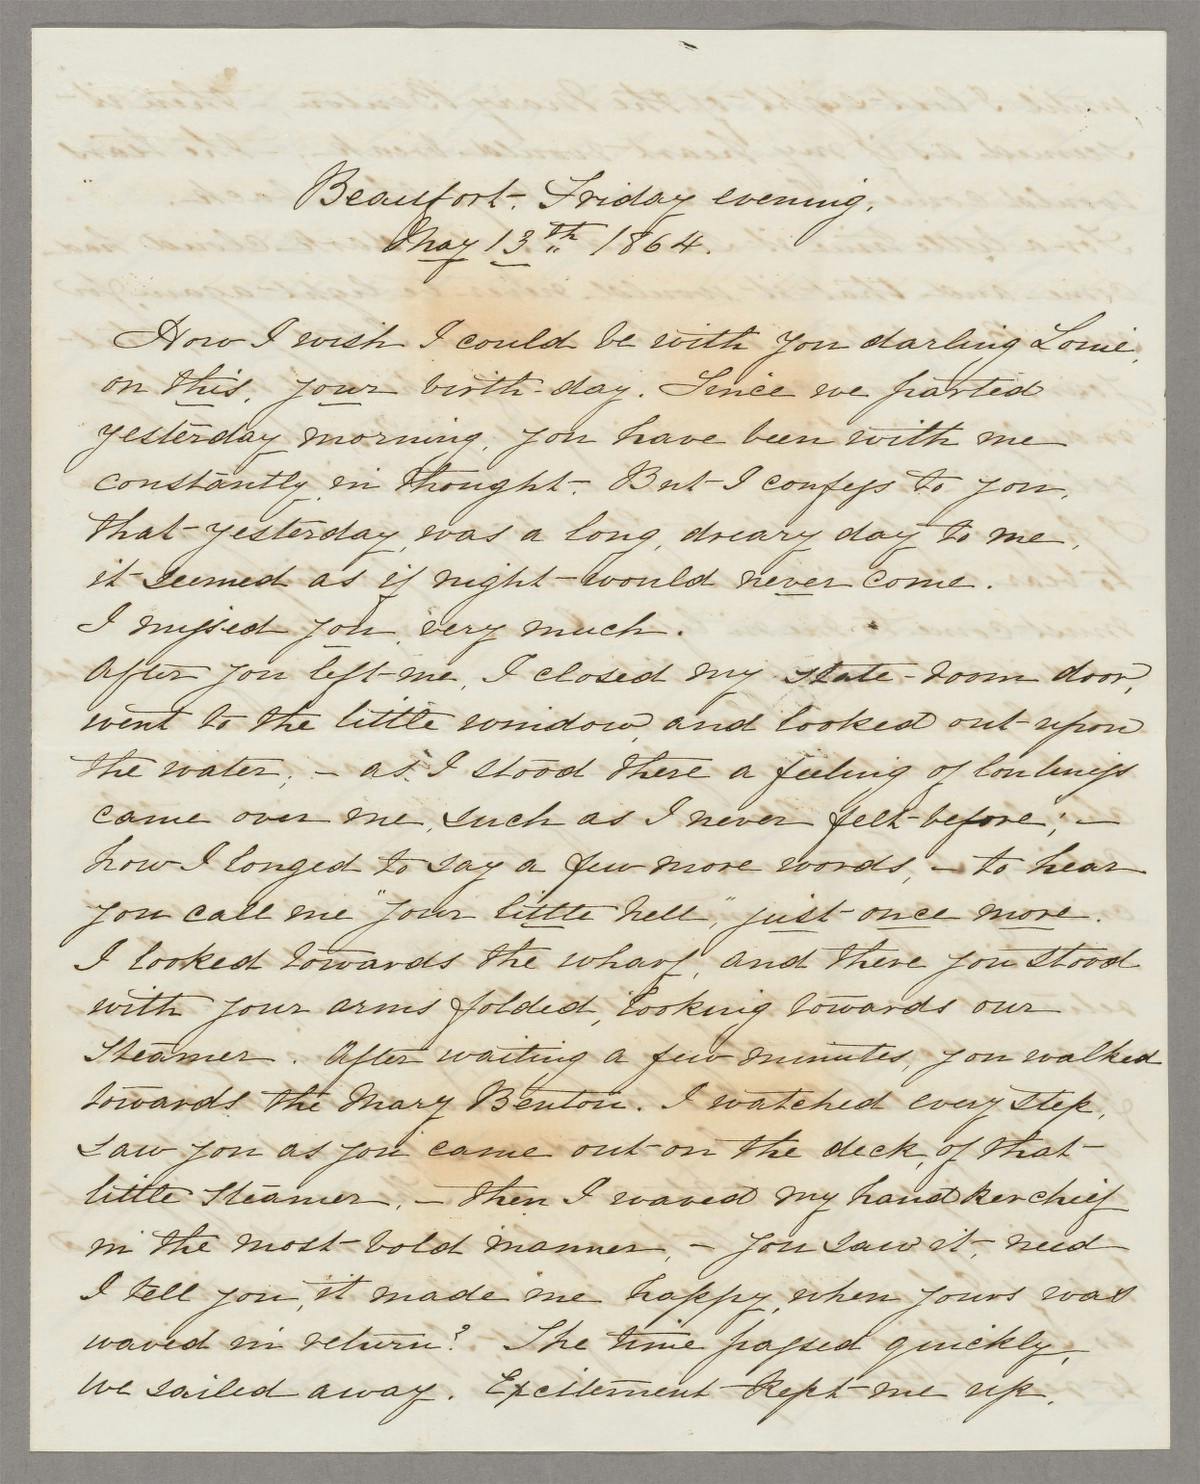 Beaufort. Friday evening.
May 13th 1864.
How I wish I could be with you darling Louie,
on this, your birth-day. Since we parted
yesterday morning, you have been with me
constantly in thought. But I confess to you,
that yesterday, was a long, dreary day to me,
it seemed as if night would never come.
I missed you, very much.
After you left me, I closed my state-room door,
went to the little window, and looked out upon
the water; — as I stood there a feeling of
came over me, such as I never felt before; —
how I longed to say a few more words, — to hear
you call me "your little Nell", just once more.
I looked towards the wharf, and there you stood
with your arms folded, looking towards our
Steamer. After waiting a few minutes, you walked
towards the Mary Benton. I watched every step,
saw you as you came out on the deck, of that
little Steamer, — then I waved my handkerchief
in the most bold manner, — you saw it, need
I tell you, it made me happy, when yours was
waved in return? The time passed quickly,
we sailed away. Excitement kept me up,